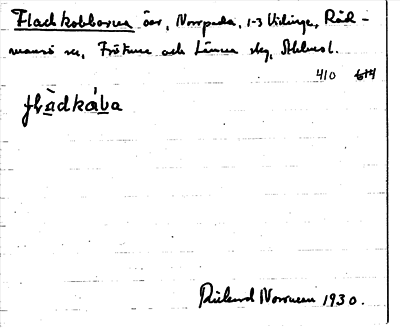 Fladkobbarna öar, Norrpada, 1-3 Vidinge, Råd-
mansö sn, Frötuna och Länna skg, Sthlms l.
410 614
fl̀àdkába
Rickard Norman 1930.